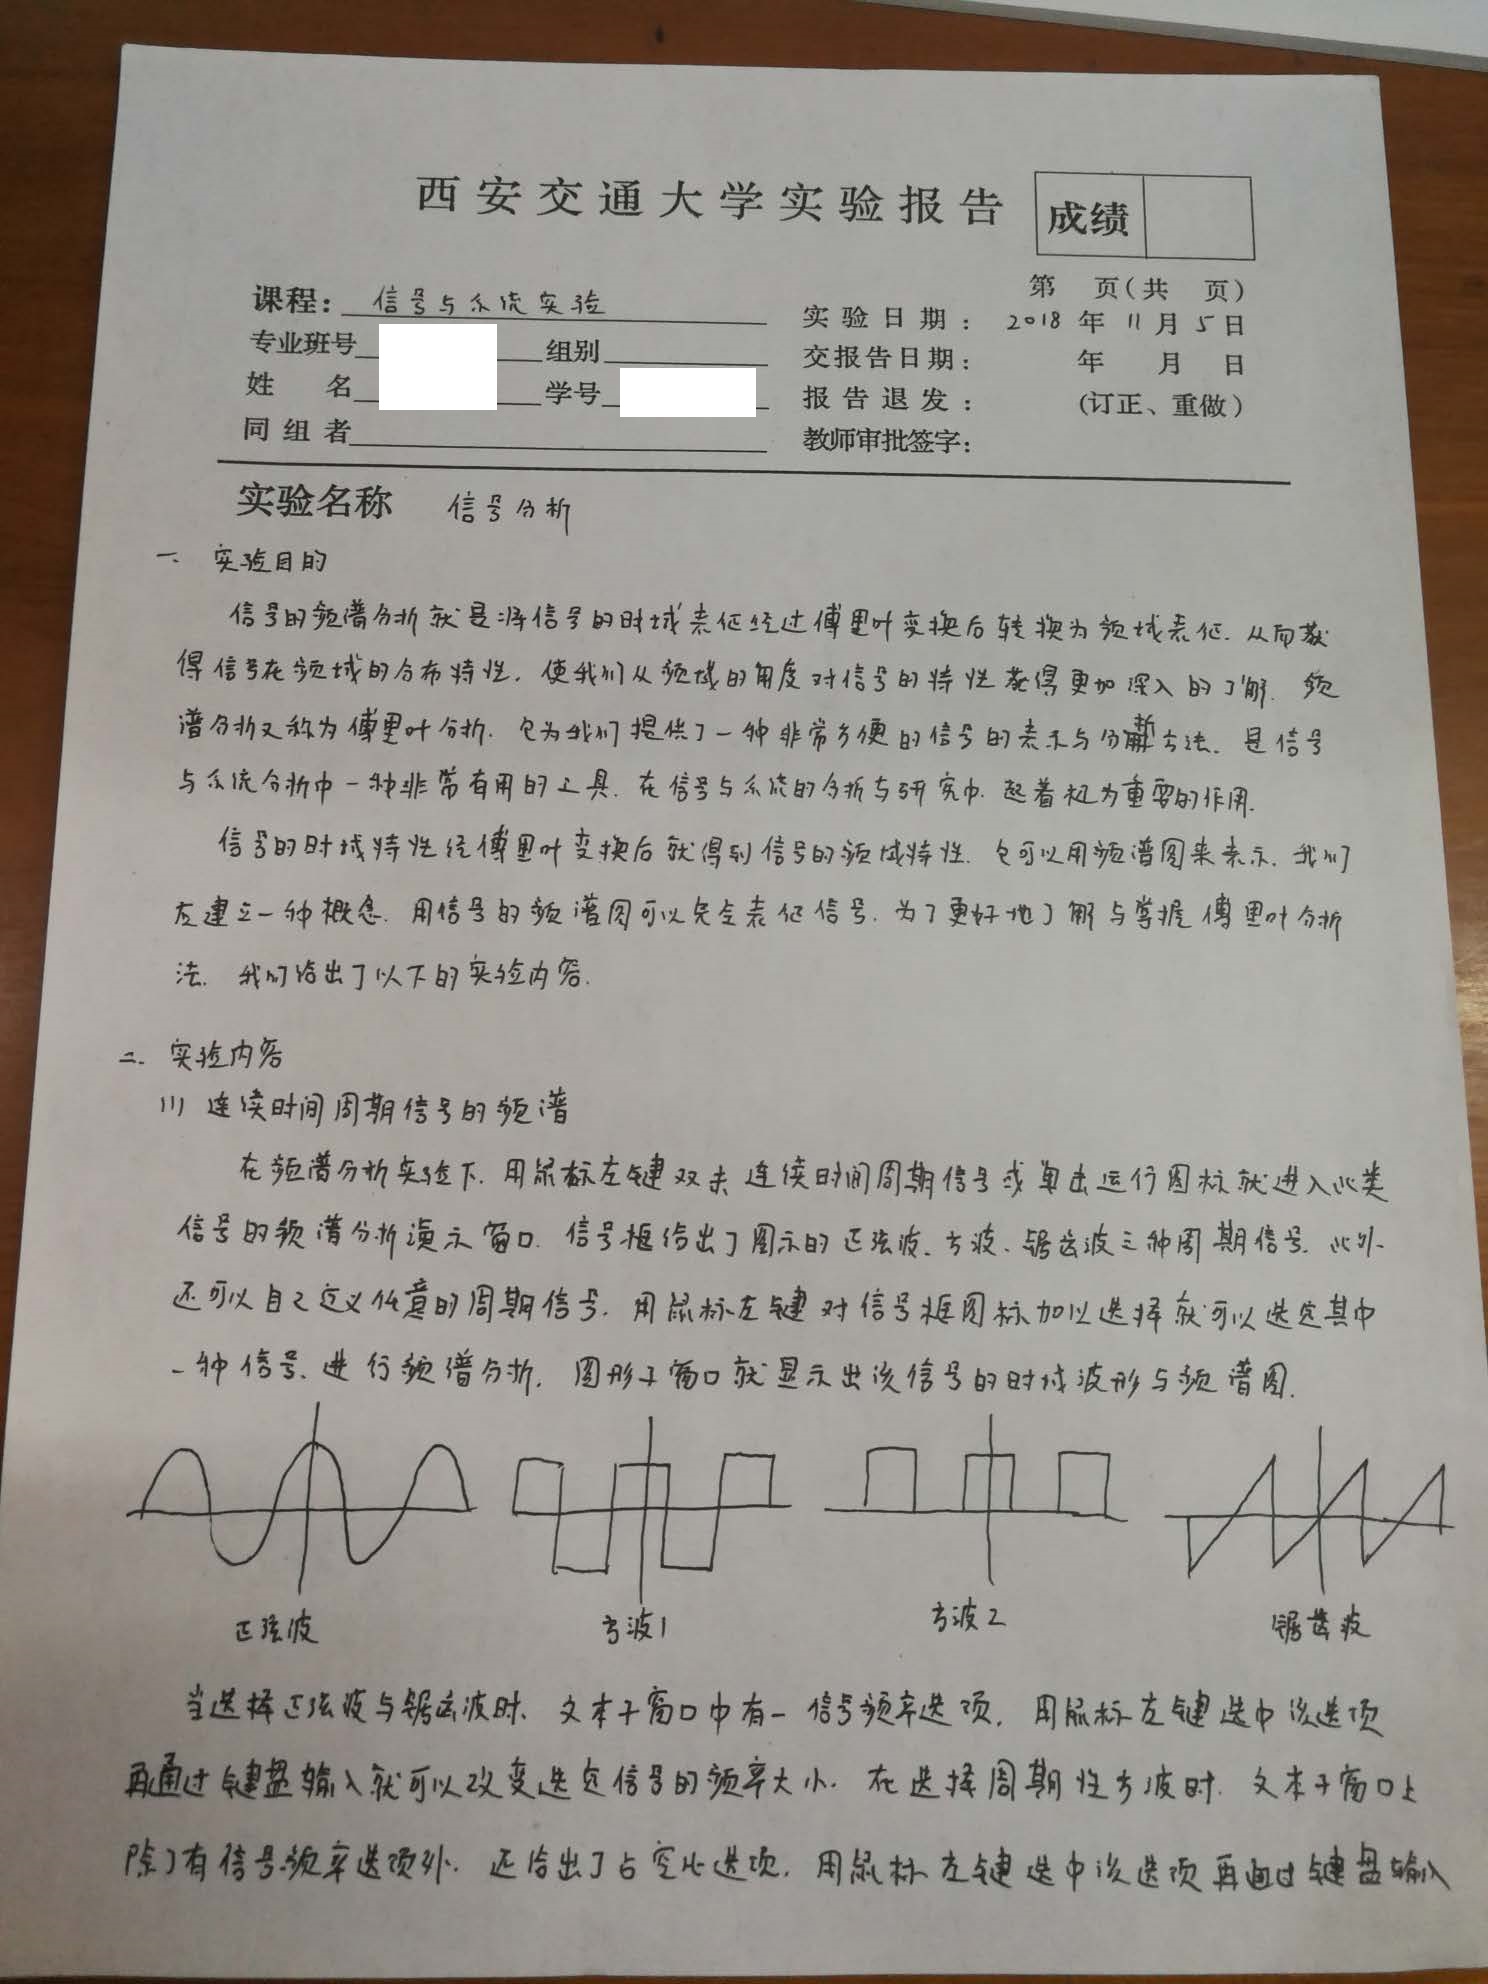 西安交通大学实验报告
成绩
第 页(共 页)
课程: 信号与系统实验
实验日期: 2018年11月5日
专业班号 组别
交报告日期: 年 月 日
姓 名 学号
报告退发: (订正、重做)
同组者
教师审批签字:
实验名称 信号分析
一、实验目的
信号的频谱分析就是将信号的时域表征经过傅里叶变换后转换为频域表征.从而获
得信号在频域的分布特性.使我们从频域的角度对信号的特性获得更加深入的了解.频
谱分析又称为傅里叶分析.它为我们提供了一种非常方便的信号的表示与分析方法.是信号
与系统分析中一种非常有用的工具.在信号与系统的分析与研究中.起着极为重要的作用.
信号的时域特性经傅里叶变换后就得到信号的频域特性.它可以用频谱图来表示.我们
应建立一种概念.用信号的频谱图可以完全表征信号.为了更好地了解与掌握傅里叶分析
法.我们给出了以下的实验内容.
二.实验内容
(1) 连续时间周期信号的频谱
在频谱分析实验下.用鼠标左键双击连续时间周期信号或单击运行图标就进入此类
信号的频谱分析演示窗口.信号框给出了图示的正弦波、方波、锯齿波三种周期信号.此外.
还可以自己定义任意的周期信号.用鼠标左键对信号框图标加以选择就可以选定其中
一种信号、进行频谱分析.图形子窗口就显示出该信号的时域波形与频谱图.
正弦波 方波1 方波2 锯齿波
当选择正弦波与锯齿波时.文本子窗口中有一信号频率选项.用鼠标左键选中该选项
再通过键盘输入就可以改变选定信号的频率大小.在选择周期性方波时.文本子窗口上
除了有信号频率选项外.还给出了占空比选项.用鼠标左键选中该选项再通过键盘输入